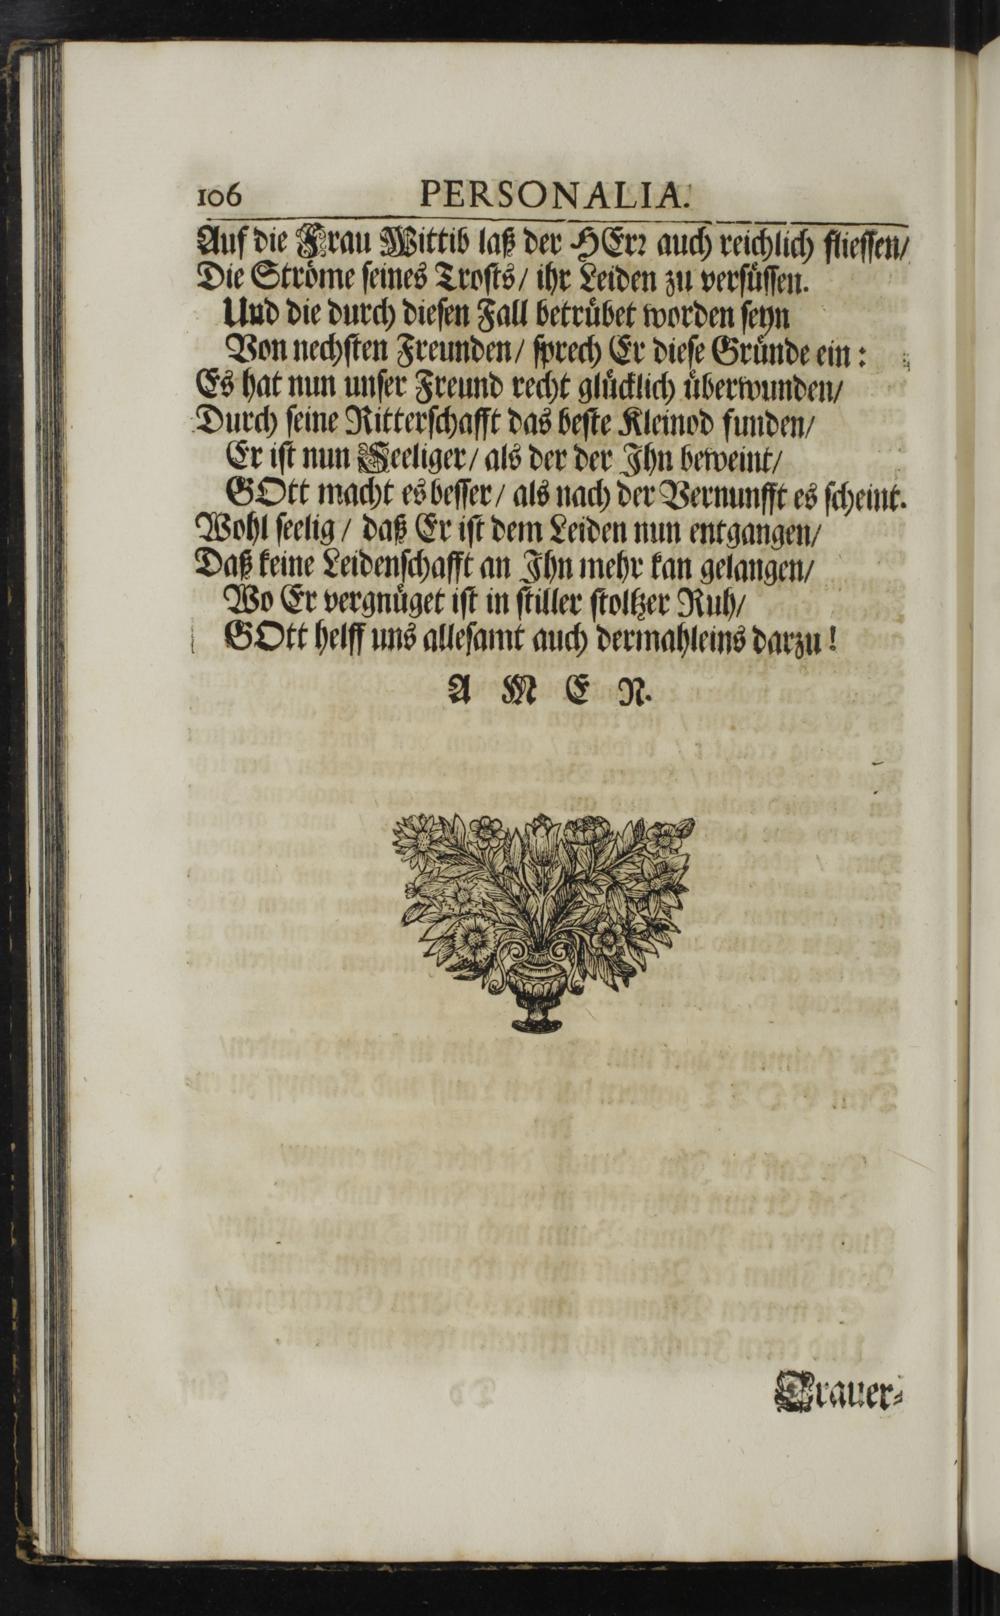 106 PERSONALIA.
Auf die Frau Wittib laß der HErr auch reichlich fliessen/
Die Ströme seines Trosts/ ihr Leiden zu versüssen.
Und die durch diesen Fall betrübet worden seyn
Von nechsten Freunden/ sprech Er diese Gründe ein:
Es hat nun unser Freund recht glücklich überwunden/
Durch seine Ritterschafft das beste Kleinod funden/
Er ist nun Seeliger/ als der der Ihn beweint/
GOtt macht es besser/ als nach der Vernunfft es scheint.
Wohl seelig/ daß Er ist dem Leiden nun entgangen/
Daß keine Leidenschafft an Ihn mehr kan gelangen/
Wo Er vergnüget ist in stiller stoltzer Ruh/
GOtt helff uns allesamt auch dermahleins darzu!
A M E N.
Trauer-